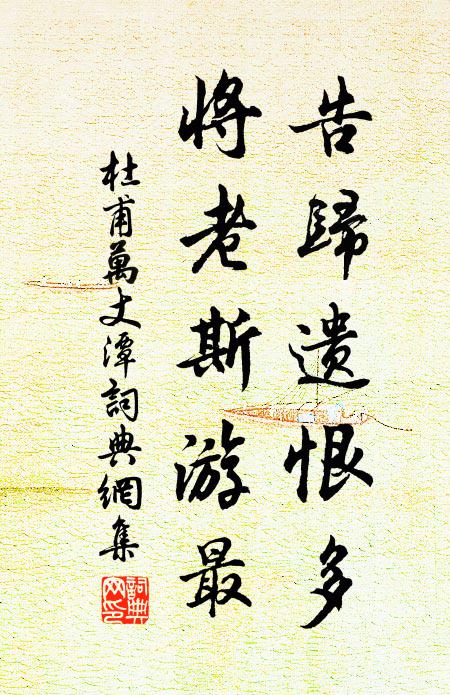 告歸遺恨多
將老斯游最
杜甫萬丈潭詞典網集
詞典
网印